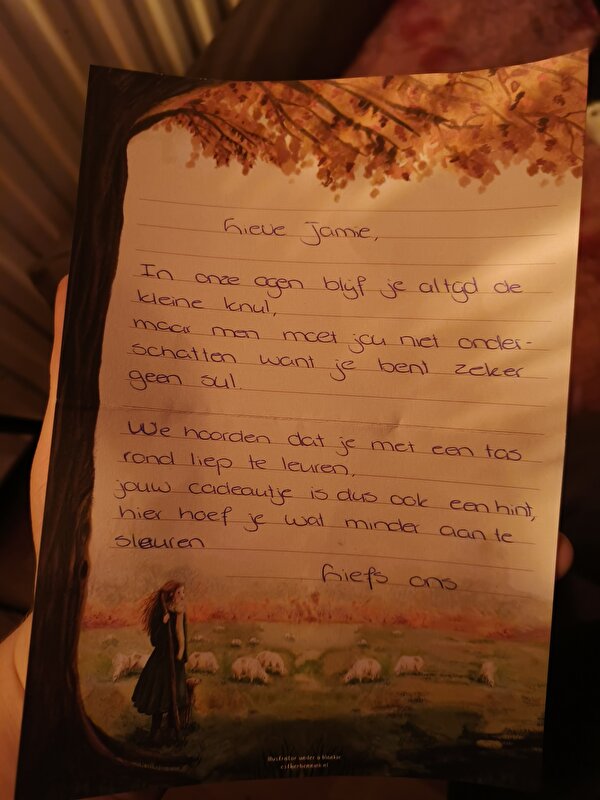 Lieve Jamie,
In onze ogen blijf je altijd de
kleine knul,
maar men moet jou niet onder-
schatten want je bent zeker
geen sul.
We hoorden dat je met een tas
rond liep te leuren,
jouw cadeautje is dus ook een hint,
hier hoef je wat minder aan te
sleuren
Liefs ons